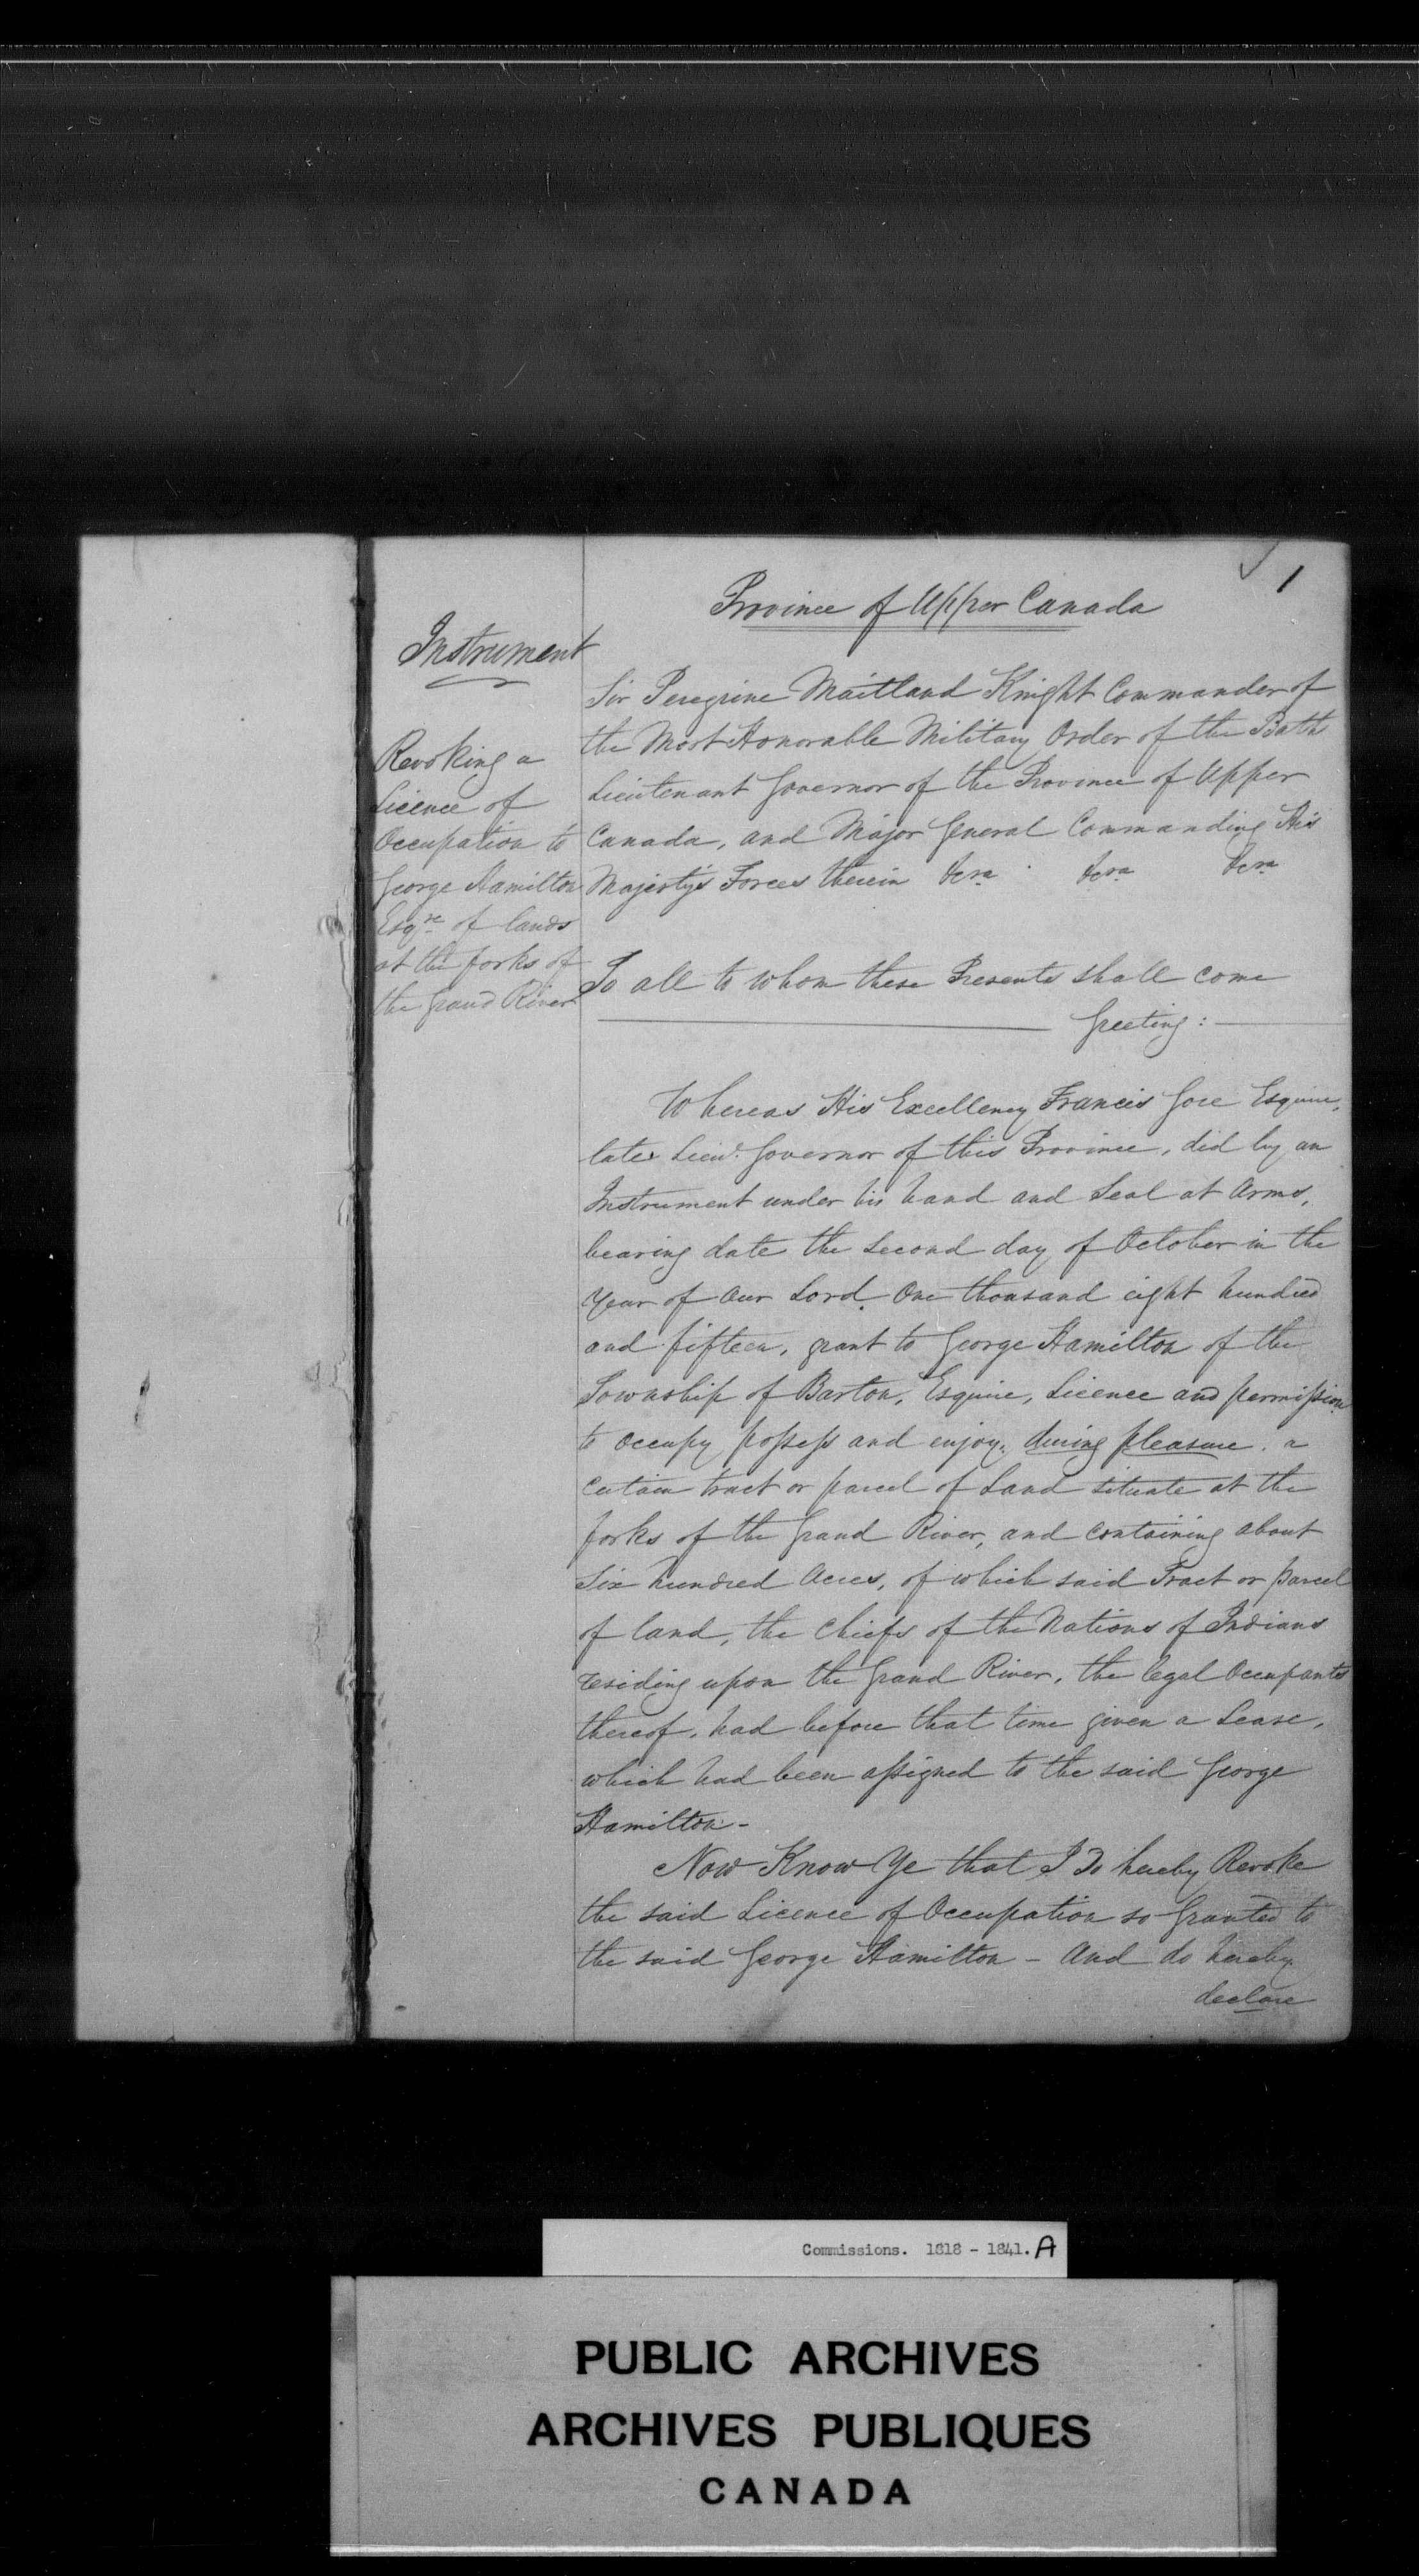 1
Province of Upper Canada
Instrument
Revoking a
Licence of
Occupation to
George Hamilton
Esqre of lands
at the forks of
the Grand River
Sir Peregrine Maitland Knight Commander of
the Most Honorable Military Order of the Bath
Lieutenant Governor of the Province of Upper
Canada, and Major General Commanding His
Majesty's Forces therein &ca &ca &ca
To all to whom these Presents shall come
Greeting:
Whereas His Excellency Francis Gore Esquire,
late Lieut. Governor of this Province, did by an
Instrument under his hand and Seal at Arms,
bearing date the second day of October in the
Year of Our Lord One thousand eight hundred
and fifteen, grant to George Hamilton of the
Township of Barton, Esquire, Licence and permission
to occupy possess and enjoy, during pleasure, a
certain tract or parcel of Land situate at the
forks of the Grand River, and containing about
Six hundred Acres, of which said Tract or parcel
of land, the Chiefs of the Nations of Indians
residing upon the Grand River, the legal Occupants
thereof, had before that time given a Lease,
which had been assigned to the said George
Hamilton -
Now Know Ye that I Do hereby Revoke
the said Licence of Occupation so Granted to
the said George Hamilton - And do hereby
declare
Commissions. 1818 - 1841. A
PUBLIC ARCHIVES
ARCHIVES PUBLIQUES
CANADA